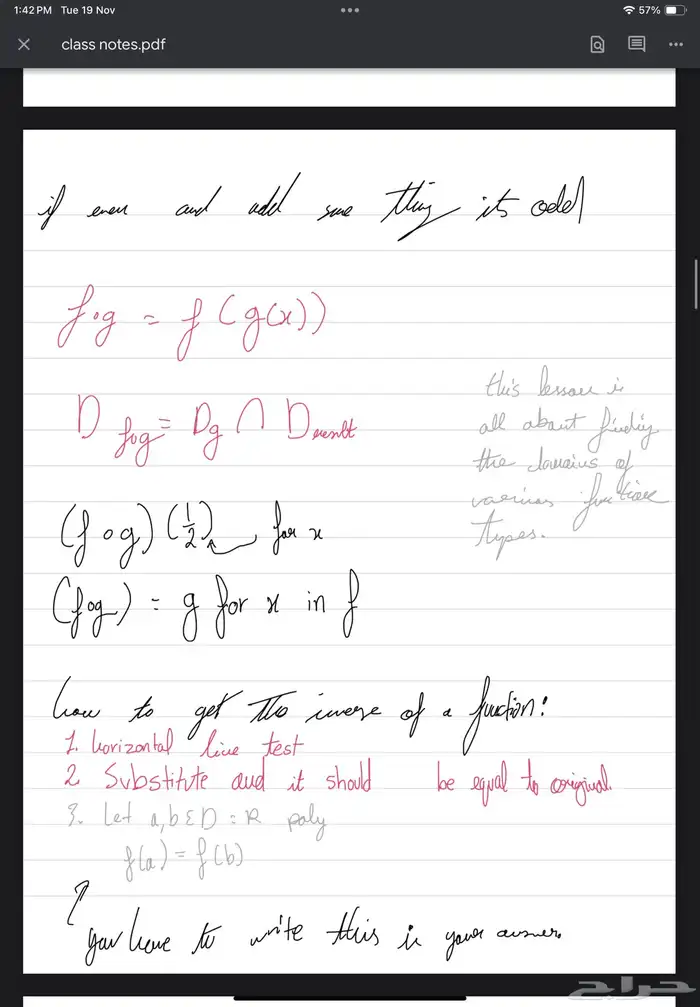 1:42 PM Tue 19 Nov
57%
class notes.pdf
if even and add some thing its odd
f∘g = f(g(x))
D fog = Dg ∩ D result
this lesson is
all about finding
the domains of
various function
types.
(f∘g)(1/2) for x
(fog) = g for x in f
how to get the inverse of a function:
1. horizontal line test
2 Substitute and it should be equal to original.
3. Let a,b ∈ D = R poly
f(a) = f(b)
you have to write this in your answer.
حراج